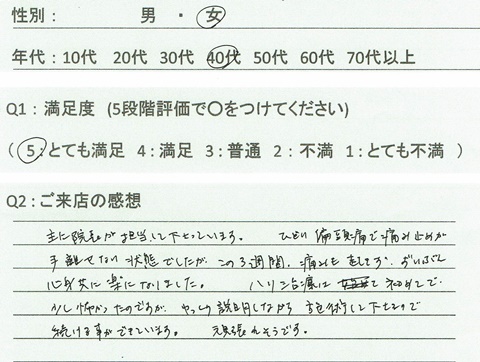 性別： 男 ・ 女
年代：10代 20代 30代 40代 50代 60代 70代以上
Q1：満足度 (5段階評価で〇をつけてください)
( 5：とても満足 4：満足 3：普通 2：不満 1：とても不満 )
Q2：ご来店の感想
主に院長が担当して下さっています。 ひどい偏頭痛で痛み止めが
手離せない状態でしたが この3週間、痛みも をしてず、ずいぶん
心身共に楽になりました。 ハリ治療は て初めてで
少し怖かったのですが、やっり説明しながら 施術して下さるので
続ける事ができています。 頑張れそうです。